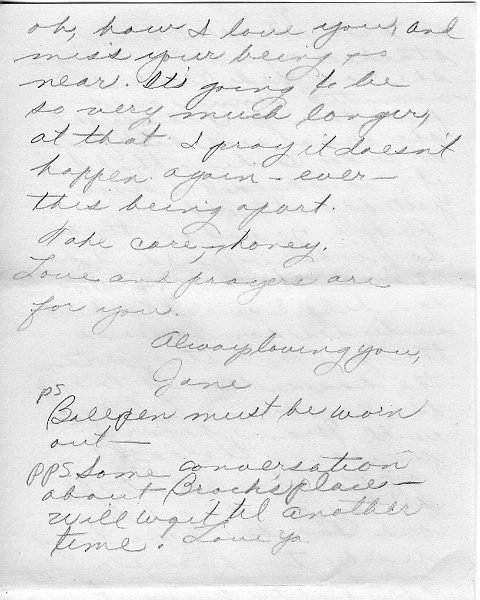 oh, how I love you, and
miss your being so
near. It's going to be
so very much longer,
at that. I pray it doesn't
happen again - ever -
this being apart.
Take care, honey.
Love and prayers are
for you.
Always loving you,
Jane
ps
Ballpen must be worn
out -
pps Some conversation
about Brock's place -
will wait til another
time. Love Ya